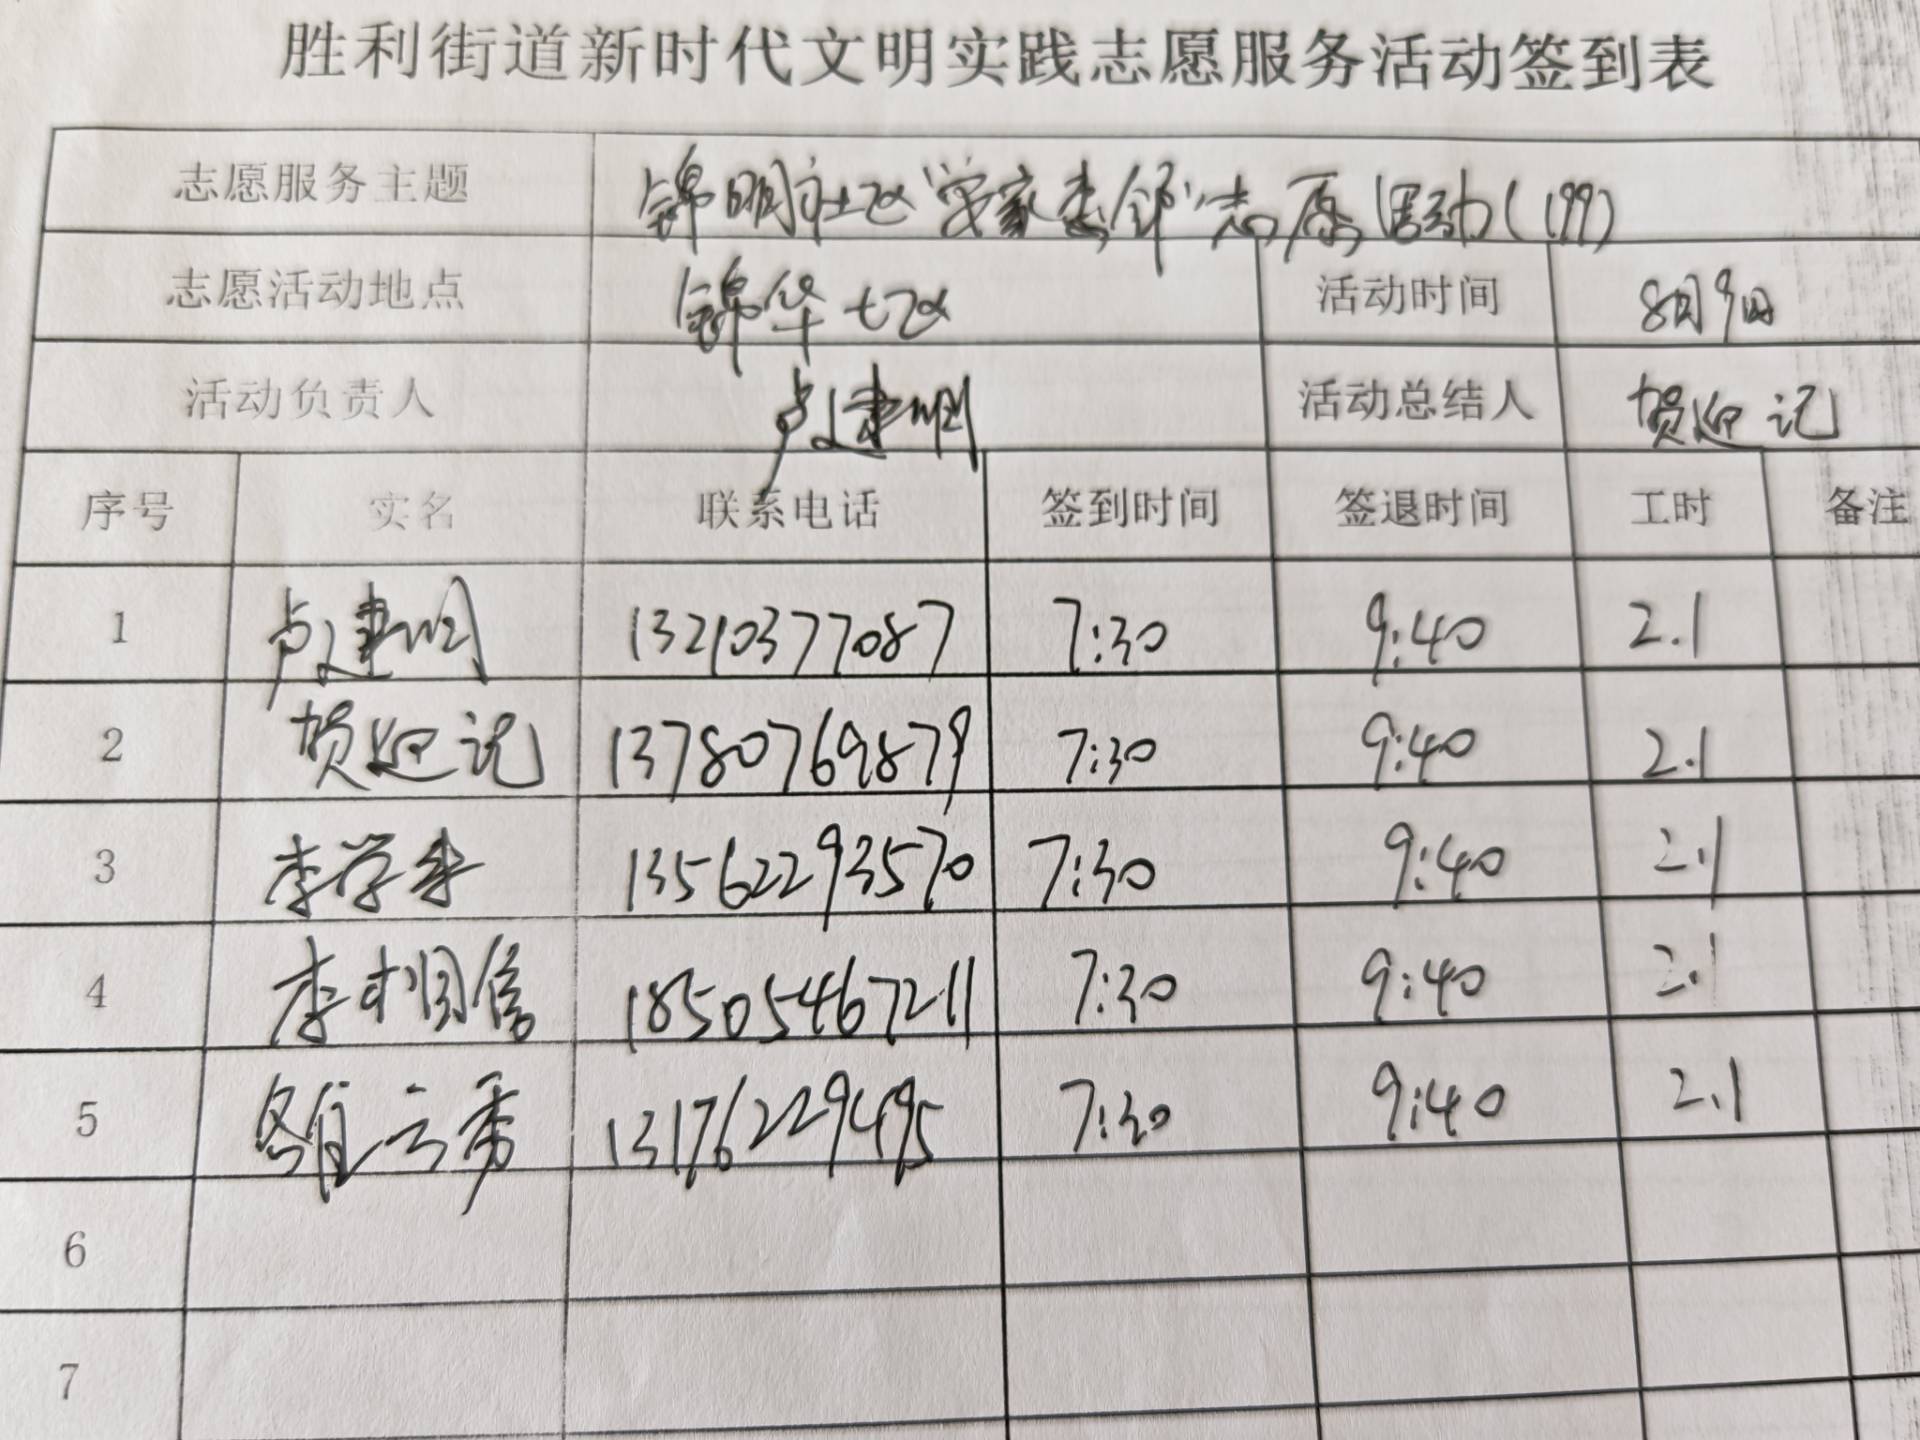 胜利街道新时代文明实践志愿服务活动签到表
志愿服务主题 锦明社区"安家委邻"志愿活动(199)
志愿活动地点 锦华七区 活动时间 8月9日
活动负责人 卢建明 活动总结人 贺迎记
序号 实名 联系电话 签到时间 签退时间 工时 备注
1 卢建明 13210377087 7:30 9:40 2.1
2 贺迎记 13780769879 7:30 9:40 2.1
3 李学来 13562293570 7:30 9:40 2.1
4 李相信 18505467211 7:30 9:40 2.1
5 云秀 13176229495 7:30 9:40 2.1
6
7